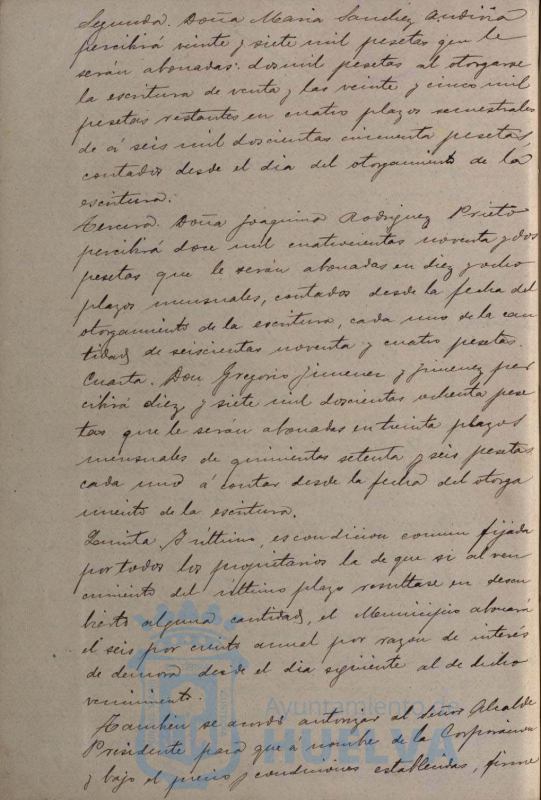 Segunda. Doña Maria Sanchez Andiña
percibirá veinte y siete mil pesetas que le
serán abonadas: dos mil pesetas al otorgarse
la escritura de venta y las veinte y cinco mil
pesetas restantes en cuatro plazos semestrales
de á seis mil doscientas cincuenta pesetas,
contados desde el dia del otorgamiento de la
escritura.
Tercera. Doña Joaquina Rodriguez Prieto
percibirá doce mil cuatrocientas noventa y dos
pesetas que le serán abonadas en diez y ocho
plazos mensuales, contados desde la fecha del
otorgamiento de la escritura, cada uno de la can
tidad de seiscientas noventa y cuatro pesetas.
Cuarta. Don Gregorio Jimenez y Jimenez per
cibirá diez y siete mil doscientas ochenta pese
tas que le serán abonadas en treinta plazos
mensuales de quinientas setenta y seis pesetas
cada uno á contar desde la fecha del otorga
miento de la escritura.
Quinta y último, es condicion comun fijada
por todos los propietarios la de que si al ven
cimiento del último plazo resultase en descu
bierto alguna cantidad, el Municipio abonará
el seis por ciento anual por razón de interés
de demora desde el dia siguiente al de dicho
vencimiento.
Tambien se acordó autorizar al Señor Alcalde
Presidente para que á nombre de la Corporacion
y bajo el precio y condiciones establecidas, firme
Ayuntamiento de
HUELVA